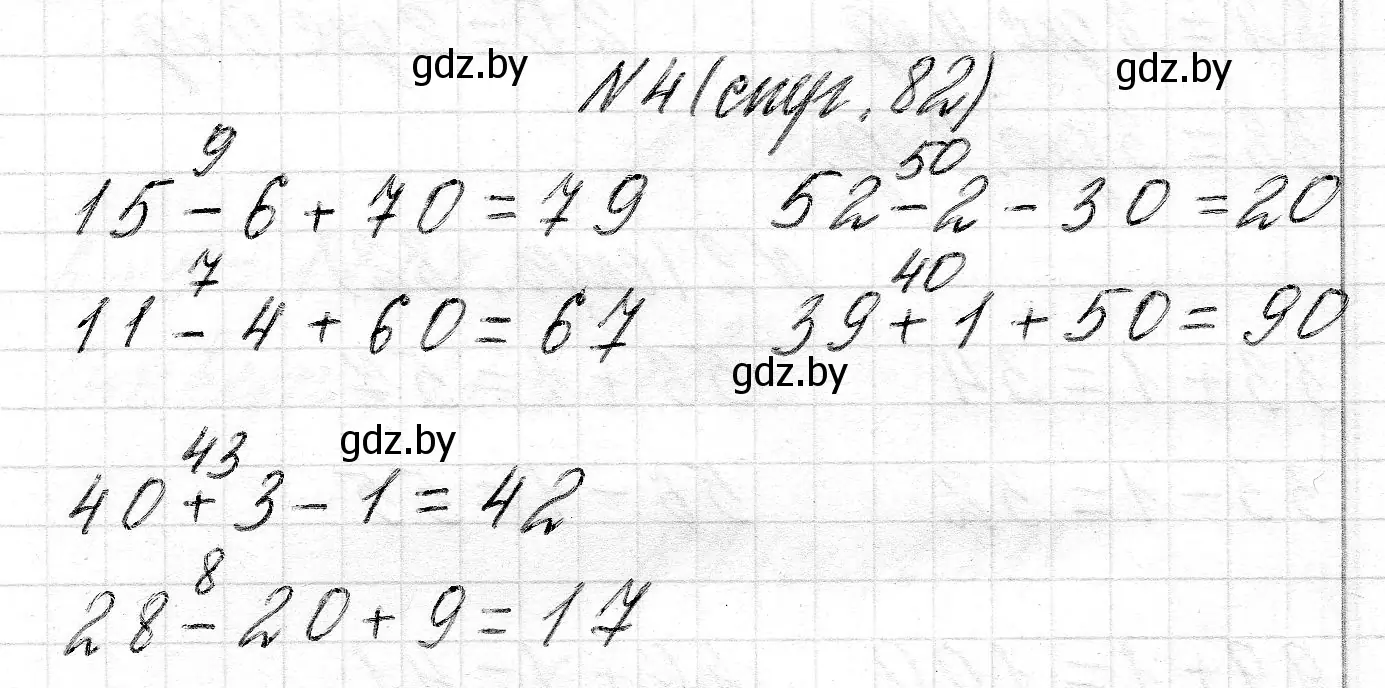 gdz.by № 4 (стр. 82) gdz.by
9 50
15 - 6 + 70 = 79 52 - 2 - 30 = 20
7 40
11 - 4 + 60 = 67 39 + 1 + 50 = 90
gdz.by
43 gdz.by
40 + 3 - 1 = 42
8
28 - 20 + 9 = 17